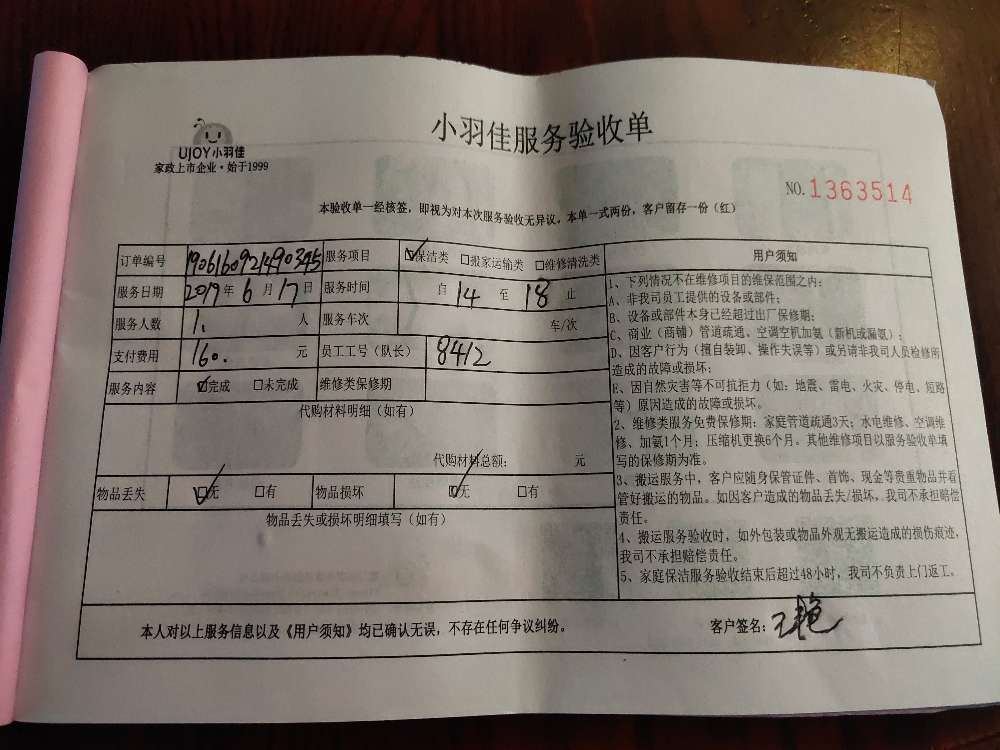 UJOY小羽佳
家政上市企业·始于1999
小羽佳服务验收单
NO.1363514
本验收单一经核签，即视为对本次服务验收无异议，本单一式两份，客户留存一份（红）
订单编号 190616092149034S 服务项目 ☑保洁类 □搬家运输类 □维修清洗类
服务日期 2019年6月17日 服务时间 自14至18止
服务人数 1. 人 服务车次 车/次
支付费用 160. 元 员工工号（队长） 8412
服务内容 ☑完成 □未完成 维修类保修期
代购材料明细（如有）
代购材料总额： 元
物品丢失 ☑无 □有 物品损坏 ☑无 □有
物品丢失或损坏明细填写（如有）
用户须知
1、下列情况不在维修项目的维保范围之内：
A、非我司员工提供的设备或部件；
B、设备或部件本身已经超过出厂保修期；
C、商业（商铺）管道疏通、空调空机加氨（新机或漏氨）；
D、因客户行为（擅自装卸、操作失误等）或另请非我司人员检修所
造成的故障或损坏；
E、因自然灾害等不可抗拒力（如：地震、雷电、火灾、停电、短路
等）原因造成的故障或损坏。
2、维修类服务免费保修期：家庭管道疏通3天；水电维修、空调维
修、加氨1个月；压缩机更换6个月。其他维修项目以服务验收单填
写的保修期为准。
3、搬运服务中，客户应随身保管证件、首饰、现金等贵重物品并看
管好搬运的物品。如因客户造成的物品丢失/损坏，我司不承担赔偿
责任。
4、搬运服务验收时，如外包装或物品外观无搬运造成的损伤痕迹，
我司不承担赔偿责任。
5、家庭保洁服务验收结束后超过48小时，我司不负责上门返工。
本人对以上服务信息以及《用户须知》均已确认无误，不存在任何争议纠纷。
客户签名：王艳